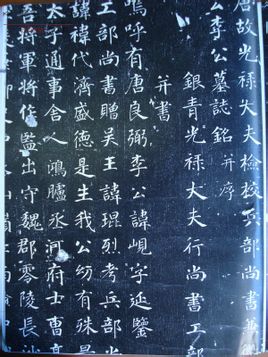 唐故光禄大夫檢校兵部尚書兼
公李公墓誌銘并序
銀青光禄大夫行尚書工部
并書
嗚呼有唐良弼李公諱峴字延鑒
工部尚書贈吴王諱琨烈考兵部尚
諱禕代濟盛德是生我公幼有殊
太子通事舍人鴻臚丞河府士曹高
吾將軍將作監出守魏郡零陵長沙